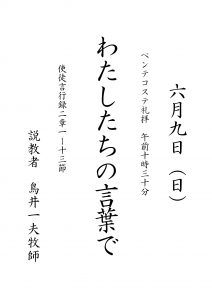 六月九日（日）
ペンテコステ礼拝　午前十時三十分
わたしたちの言葉で
使徒言行録二章一ー十三節
説教者　鳥井一夫牧師